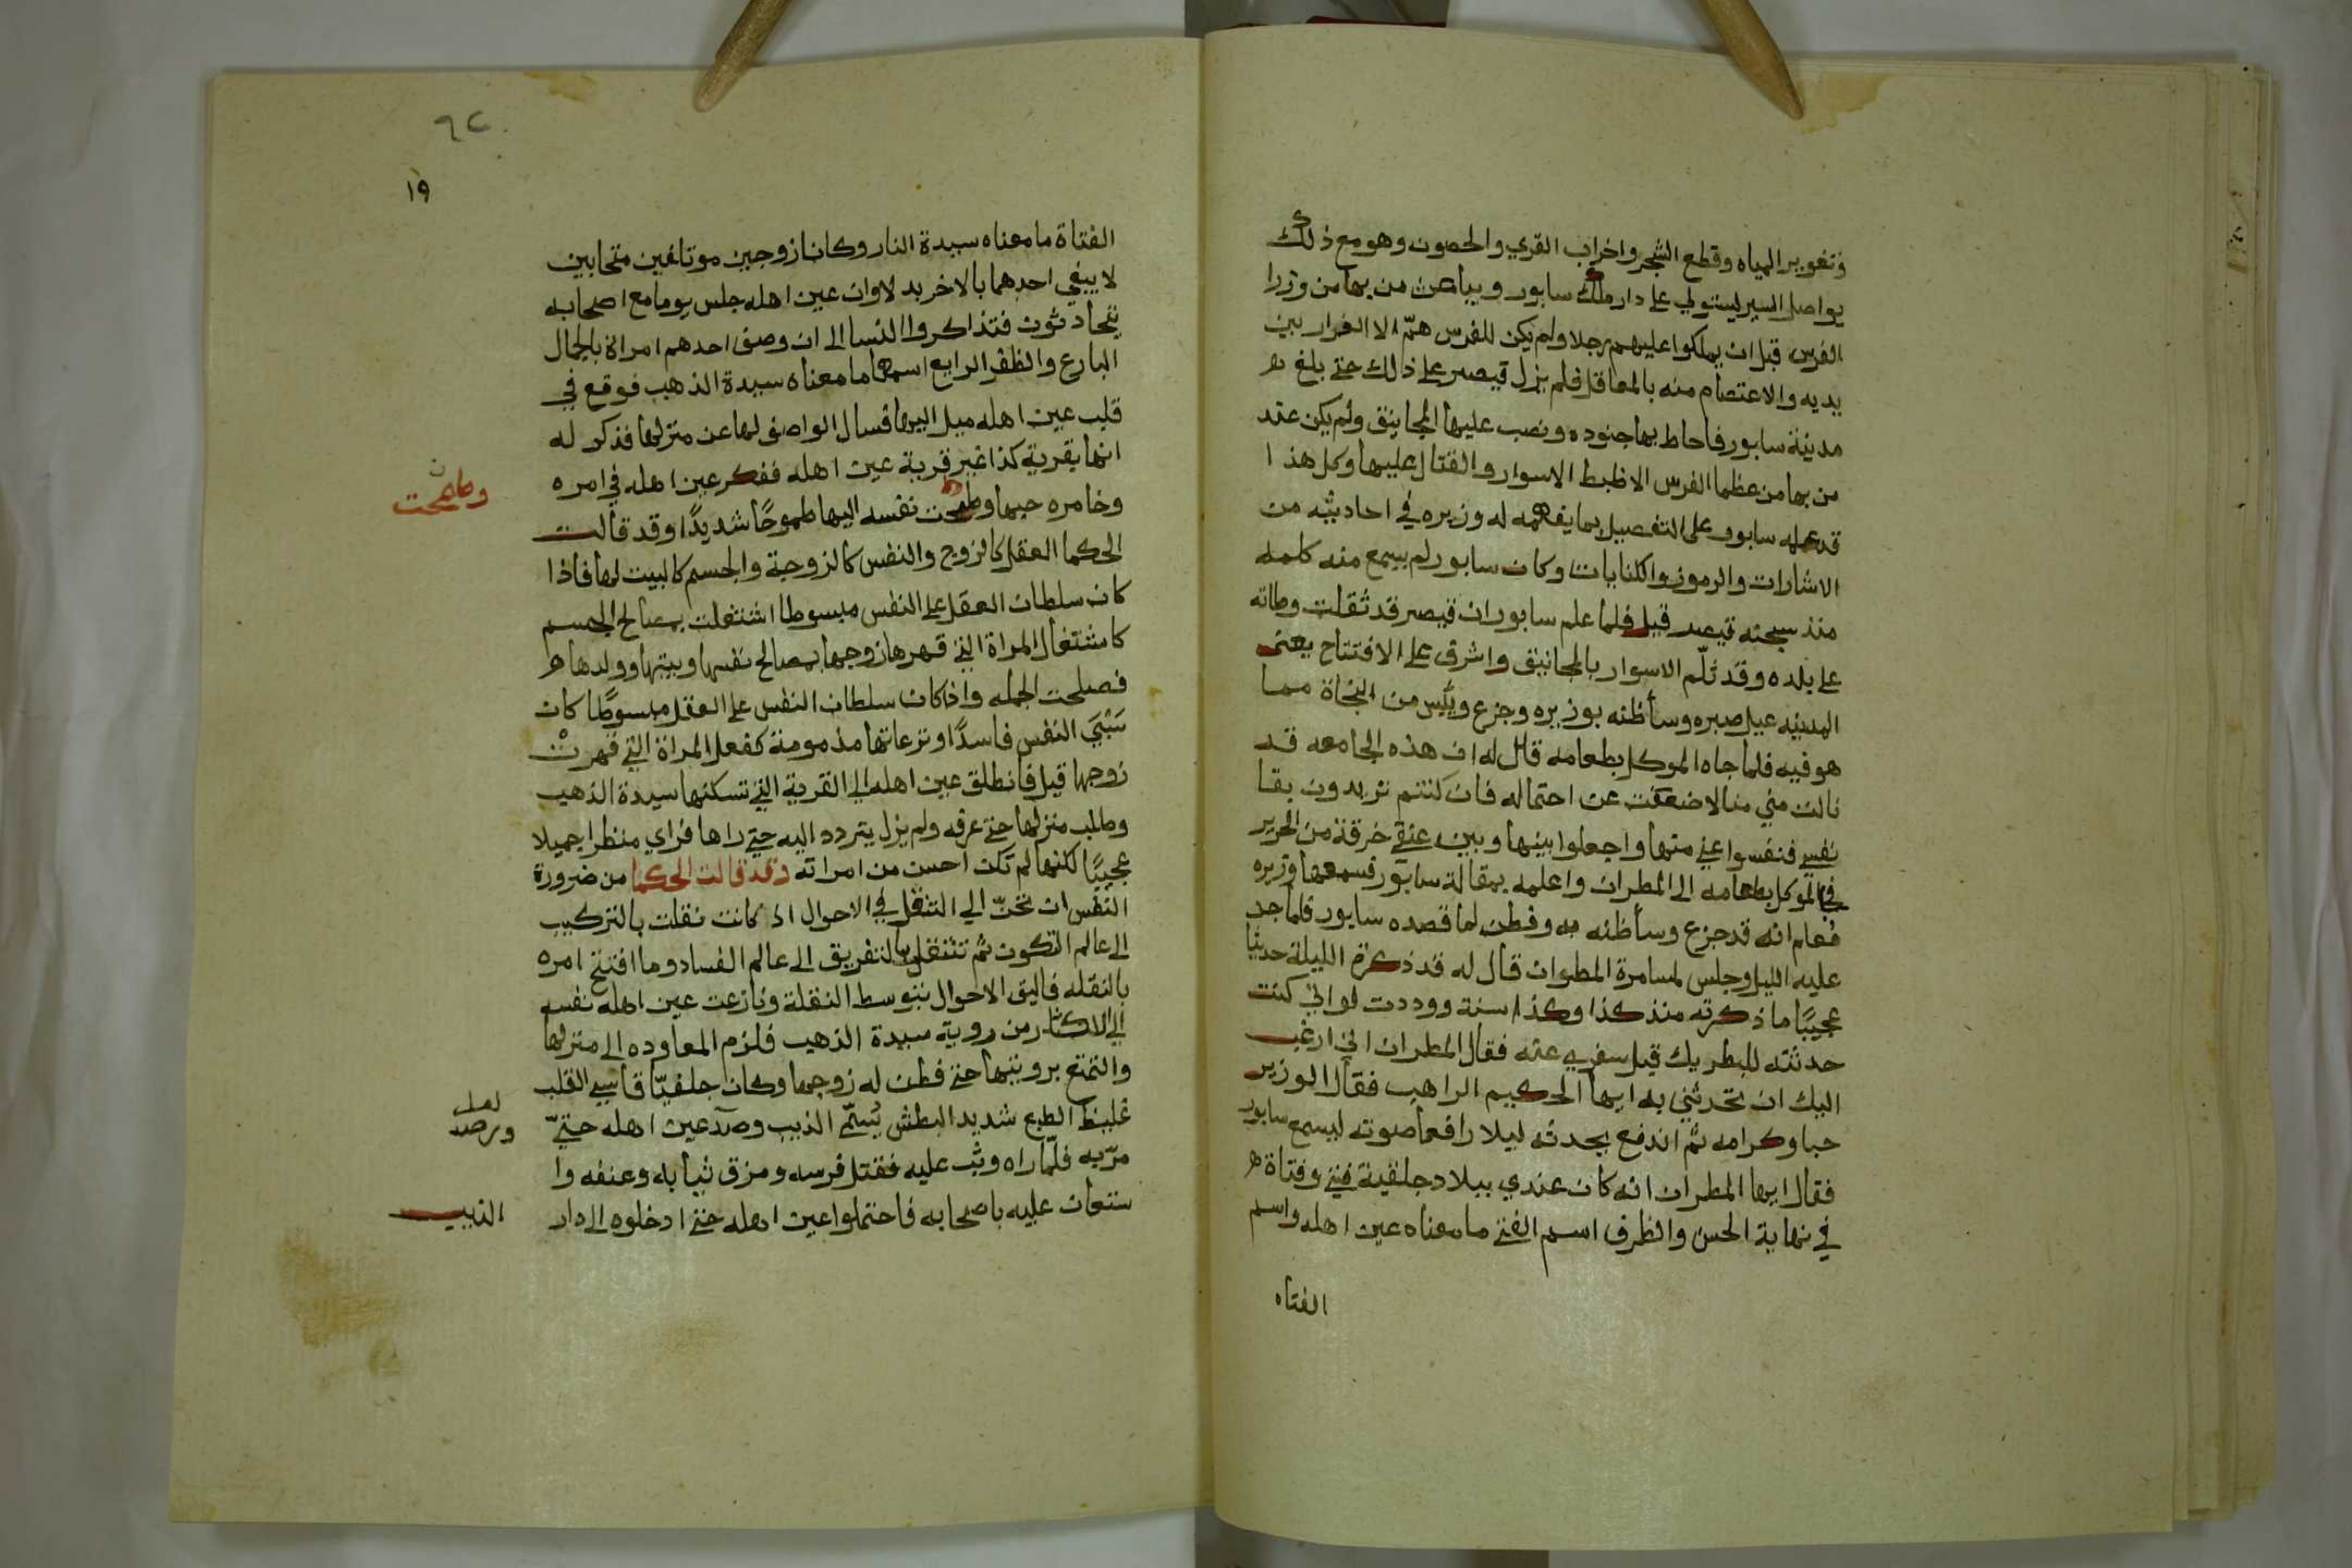 وتغوير المياه وقطع الشجر واخراب القري والحصون وهو مع ذلك
يواصل السير ليستولي على دار ملك سابور ويباعث من بها من وزرا
الفرس قبل ان يملكوا عليهم رجلا ولم يكن للفرس همّ الا الفرار بين
يديه والاعتصام منه بالمعاقل فلم يزل قيصر على ذلك حتي بلغ
مدينة سابور فاحاط بها جنوده ونصب عليها المجانيق ولم يكن عند
من بها من عظما الفرس الا ظبط الاسوار والقتال عليها وكل هذا
قد علمه سابور على التفصيل بما يفهمه له وزيره في احاديثه من
الاشارات والرموز والكنايات وكان سابور لم يسمع منه كلمه
منذ سجنه قيصر قبل فلما علم سابور ان قيصر قد ثقلت وطاته
على بلده وقد ثلّم الاسوار بالمجانيق واشرف على الافتتاح يعني
المدينه عيل صبره وسأ ظنه بوزيره وجزع ويئس من النجاة مما
هو فيه فلما جاه الموكل بطعامه قال له ان هذه الجامعه قد
نالت مني منالا ضعفت عن احتماله فان كنتم تريدون بقا
نفسي فنفسوا عني منها واجعلوا بينها وبين عنقي خرقة من الحرير
فجا الموكل بطعامه الى المطران واعلمه بمقالة سابور فسمعها وزيره
فعلم انه قد جزع وسأ ظنه به وفطن لما قصده سابور فلما جد
عليه الليل وجلس لمسامرة المطران قال له قد ذكرة الليلة حديثا
عجيبًا ما ذكرته منذ كذا وكذا سنة ووددت لو اني كنت
حدثته للبطريك قبل سفري عنه فقال المطران اني ارغب
اليك ان تحدثني به ايها الحكيم الراهب فقال الوزير
حبا وكرامه ثم اندفع يحدثه ليلا رافعا صوته ليسمع سابور
فقال ايها المطران انه كان عندي ببلاد جلقية فتي وفتاة
في نهاية الحسن والظرف اسم الفتي ما معناه عين اهله واسم
الفتاه
٦٢
١٩
الفتاة ما معناه سيدة النار وكانا زوجين موتلفين متحابين
لا يبغي احدهما بالاخر بدلا وان عين اهله جلس يوما مع اصحابه
يتحادثون فتذاكروا النسا الى ان وصف احدهم امراة بالجمال
البارع والظفر الرايع اسمها ما معناه سيدة الذهب فوقع في
قلب عين اهله ميل اليها فسال الواصف لها عن منزلها فذكر له
انها بقرية كذا غير قرية عين اهله ففكر عين اهله في امره
وخامره حبها وطمحت نفسه اليها طموحًا شديدًا وقد قالت
وطمحت ن
الحكما العقل كالزوج والنفس كالزوجة والجسم كالبيت لها فاذا
كان سلطان العقل على النفس مبسوطا اشتغلت بمصالح الجسم
كاشتغال المراة التي قهرها زوجها بمصالح نفسها وبيتها وولدها
فصلحت الجمله واذا كان سلطان النفس على العقل مبسوطًا كان
سَبْيَ النفس فاسدًا ونزعاتها مذمومة كفعل المراة التي قهرتْ
زوجها قيل فانطلق عين اهله الى القرية التي تسكنها سيدة الذهب
وطلب منزلها حتي عرفه ولم يزل يتردد اليه حتي راها فراي منظرا جميلا
عجيبًا لكنها لم تكن احسن من امراته وقد قالت الحكما من ضرورة
النفس ان تحنّ الي التنقل في الاحوال اذ كانت نقلت بالتركيب
الى عالم التكون ثم تنتقل بالتفريق الى عالم الفساد وما افتتح امره
بالنقله فاليق الاحوال بتوسط النقلة ونازعت عين اهله نفسه
الى الاكثار من روية سيدة الذهب فلزم المعاوده الى منزلها
والتمتع برويتها حتي فطن له زوجها وكان جلفيّا قاسي القلب
غليظ الطبع شديد البطش يُسمّي الذيب وصدّ عين اهله حتيّ
لعله ورصد
مرّ به فلمّا راه وثب عليه فقتل فرسه ومزق ثيابه وعنفه وا
ستعان عليه باصحابه فاحتملوا عين اهله حتي ادخلوه الى دار
الذيب